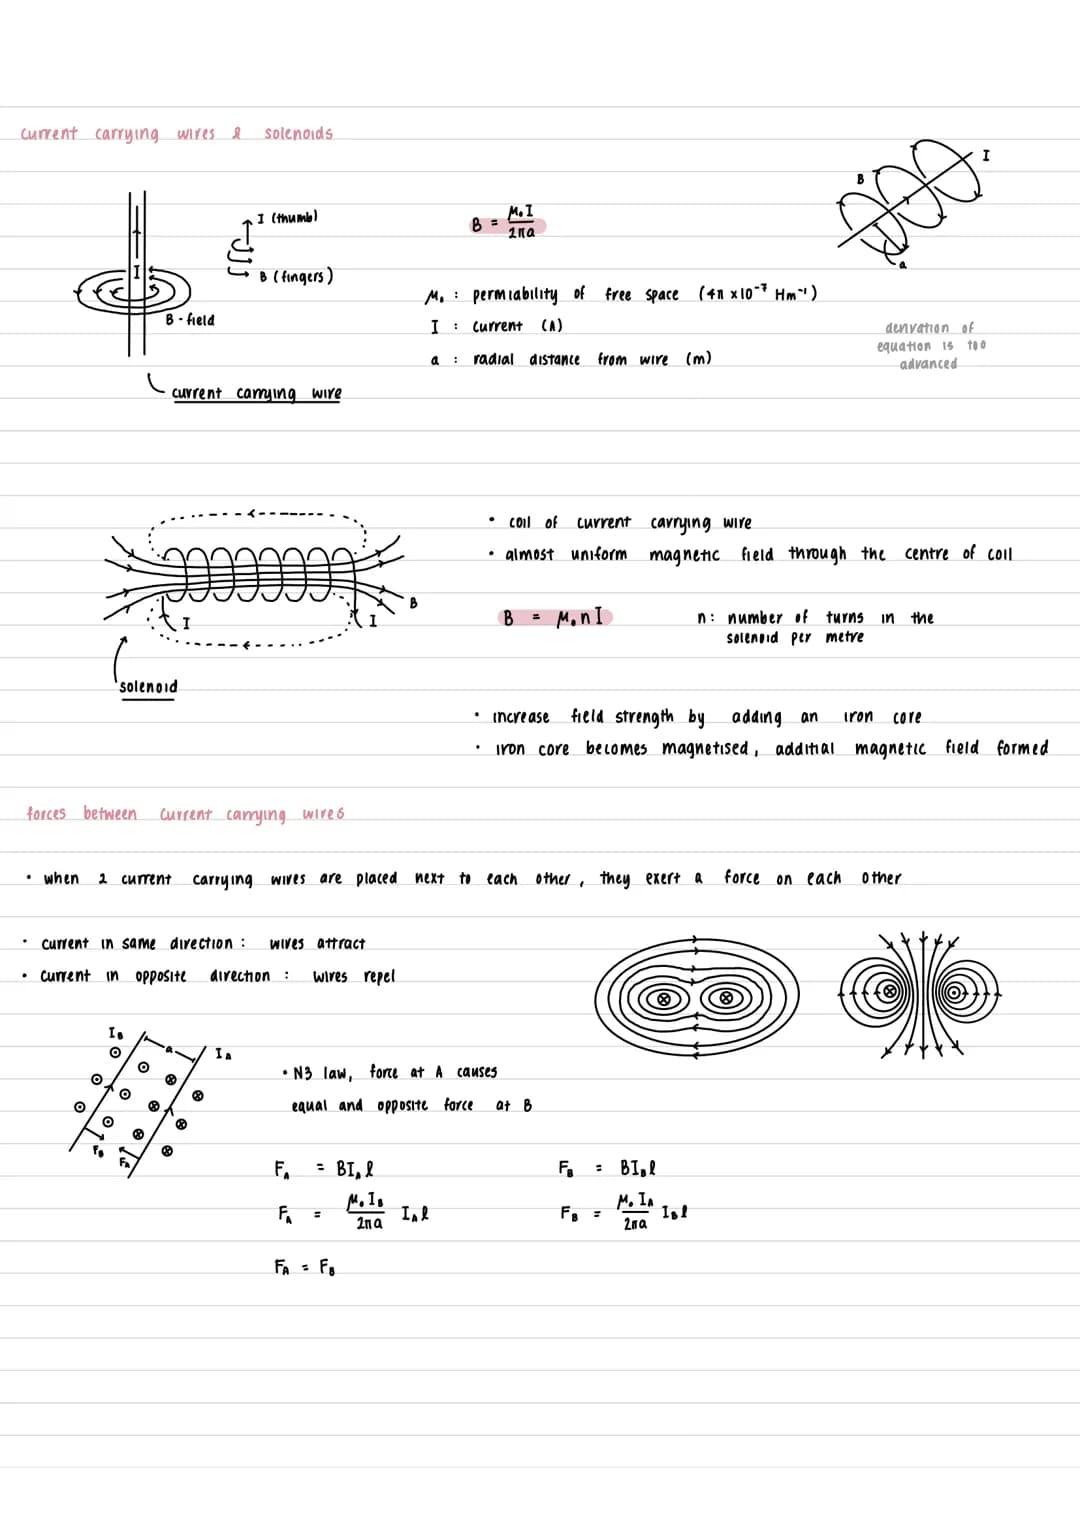 current carrying wires & solenoids
I
B
a
I (thumb)
B (fingers)
I
B - field
current carrying wire
B = μ₀I / 2πa
μ₀ : permiability of free space (4π x10⁻⁷ Hm⁻¹)
I : current (A)
a : radial distance from wire (m)
derivation of
equation is too
advanced
• coil of current carrying wire
• almost uniform magnetic field through the centre of coil
B
I
I
solenoid
B = μ₀nI
n: number of turns in the
solenoid per metre
• increase field strength by adding an iron core
• iron core becomes magnetised, additial magnetic field formed
forces between current carrying wires
• when 2 current carrying wires are placed next to each other, they exert a force on each other
• current in same direction : wires attract
• current in opposite direction : wires repel
I_B
a
I_A
F_B
F_A
• N3 law, force at A causes
equal and opposite force at B
F_A = BI_Aℓ
F_B = BI_Bℓ
F_A = μ₀I_B / 2πa I_Aℓ
F_B = μ₀I_A / 2πa I_Bℓ
F_A = F_B